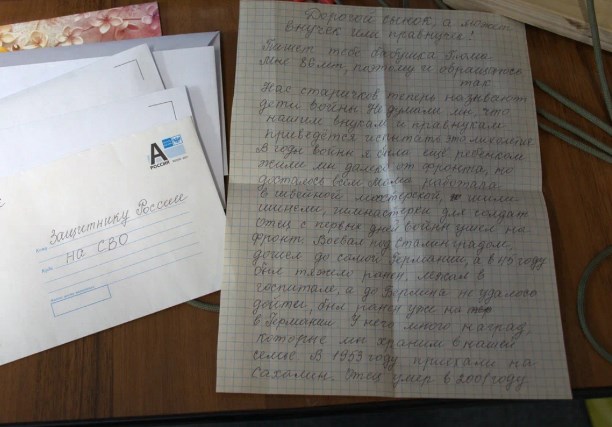 Дорогой сынок, а может
внучек или правнучек!
Пишет тебе бабушка Люма.
Мне 86 лет, поэтому и обращаюсь
так
Нас старичков теперь называют
дети войны. Не думали мы, что
нашим внукам и правнукам
приведётся испытать это лихолетье
В годы войны я была еще ребенком
жили мы далеко от фронта, но
досталось всем. Мама работала
в швейной мастерской, шили
шинели, гимнастерки для солдат
Отец с первых дней войны ушел на
фронт. Воевал под Сталинградом,
дошел до самой Германии, а в 45 году
был тяжело ранен, лежал в
госпитале, а до Берлина не удалось
дойти, был ранен уже на
в Германии У него много наград,
которые мы храним в нашей
семье. В 1953 году приехали на
Сахалин. Отец умер в 2001 году.
А
РОССИЯ
Защитнику России
на СВО
Кому
Куда